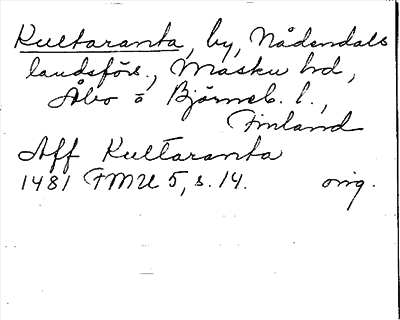 Kultaranta, by, Nådendals
landsförs., Masku hd,
Åbo o Björneb. l.,
Finland
Aff Kultaranta
1481 FMU 5, s. 14. orig.